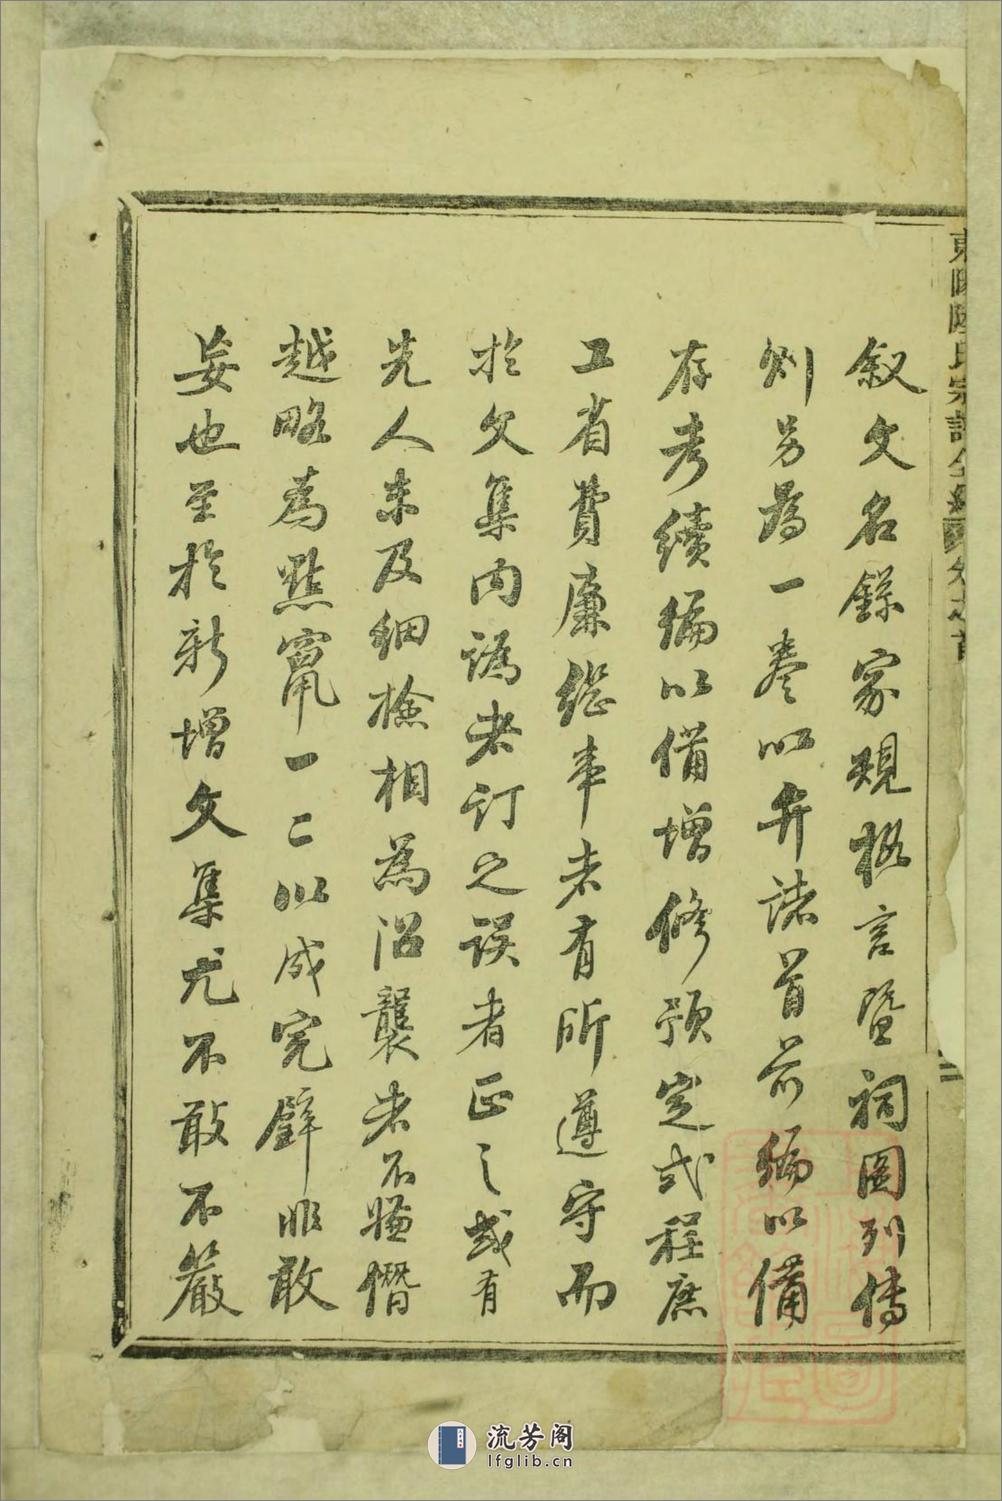 叙文名録家規格言暨祠圖列傳
則另為一卷以弁諸首前編以備
存考續編以備增修預定式程庶
工省費廉繼事者有所遵守而
於文集內譌者訂之誤者正之或有
先人未及細檢相為沿襲者不嫌僭
越略為點竄一二以成完璧非敢
妄也至於新增文集尤不敢不嚴
東陽陸氏宗譜全編
流芳阁
lfglib.cn